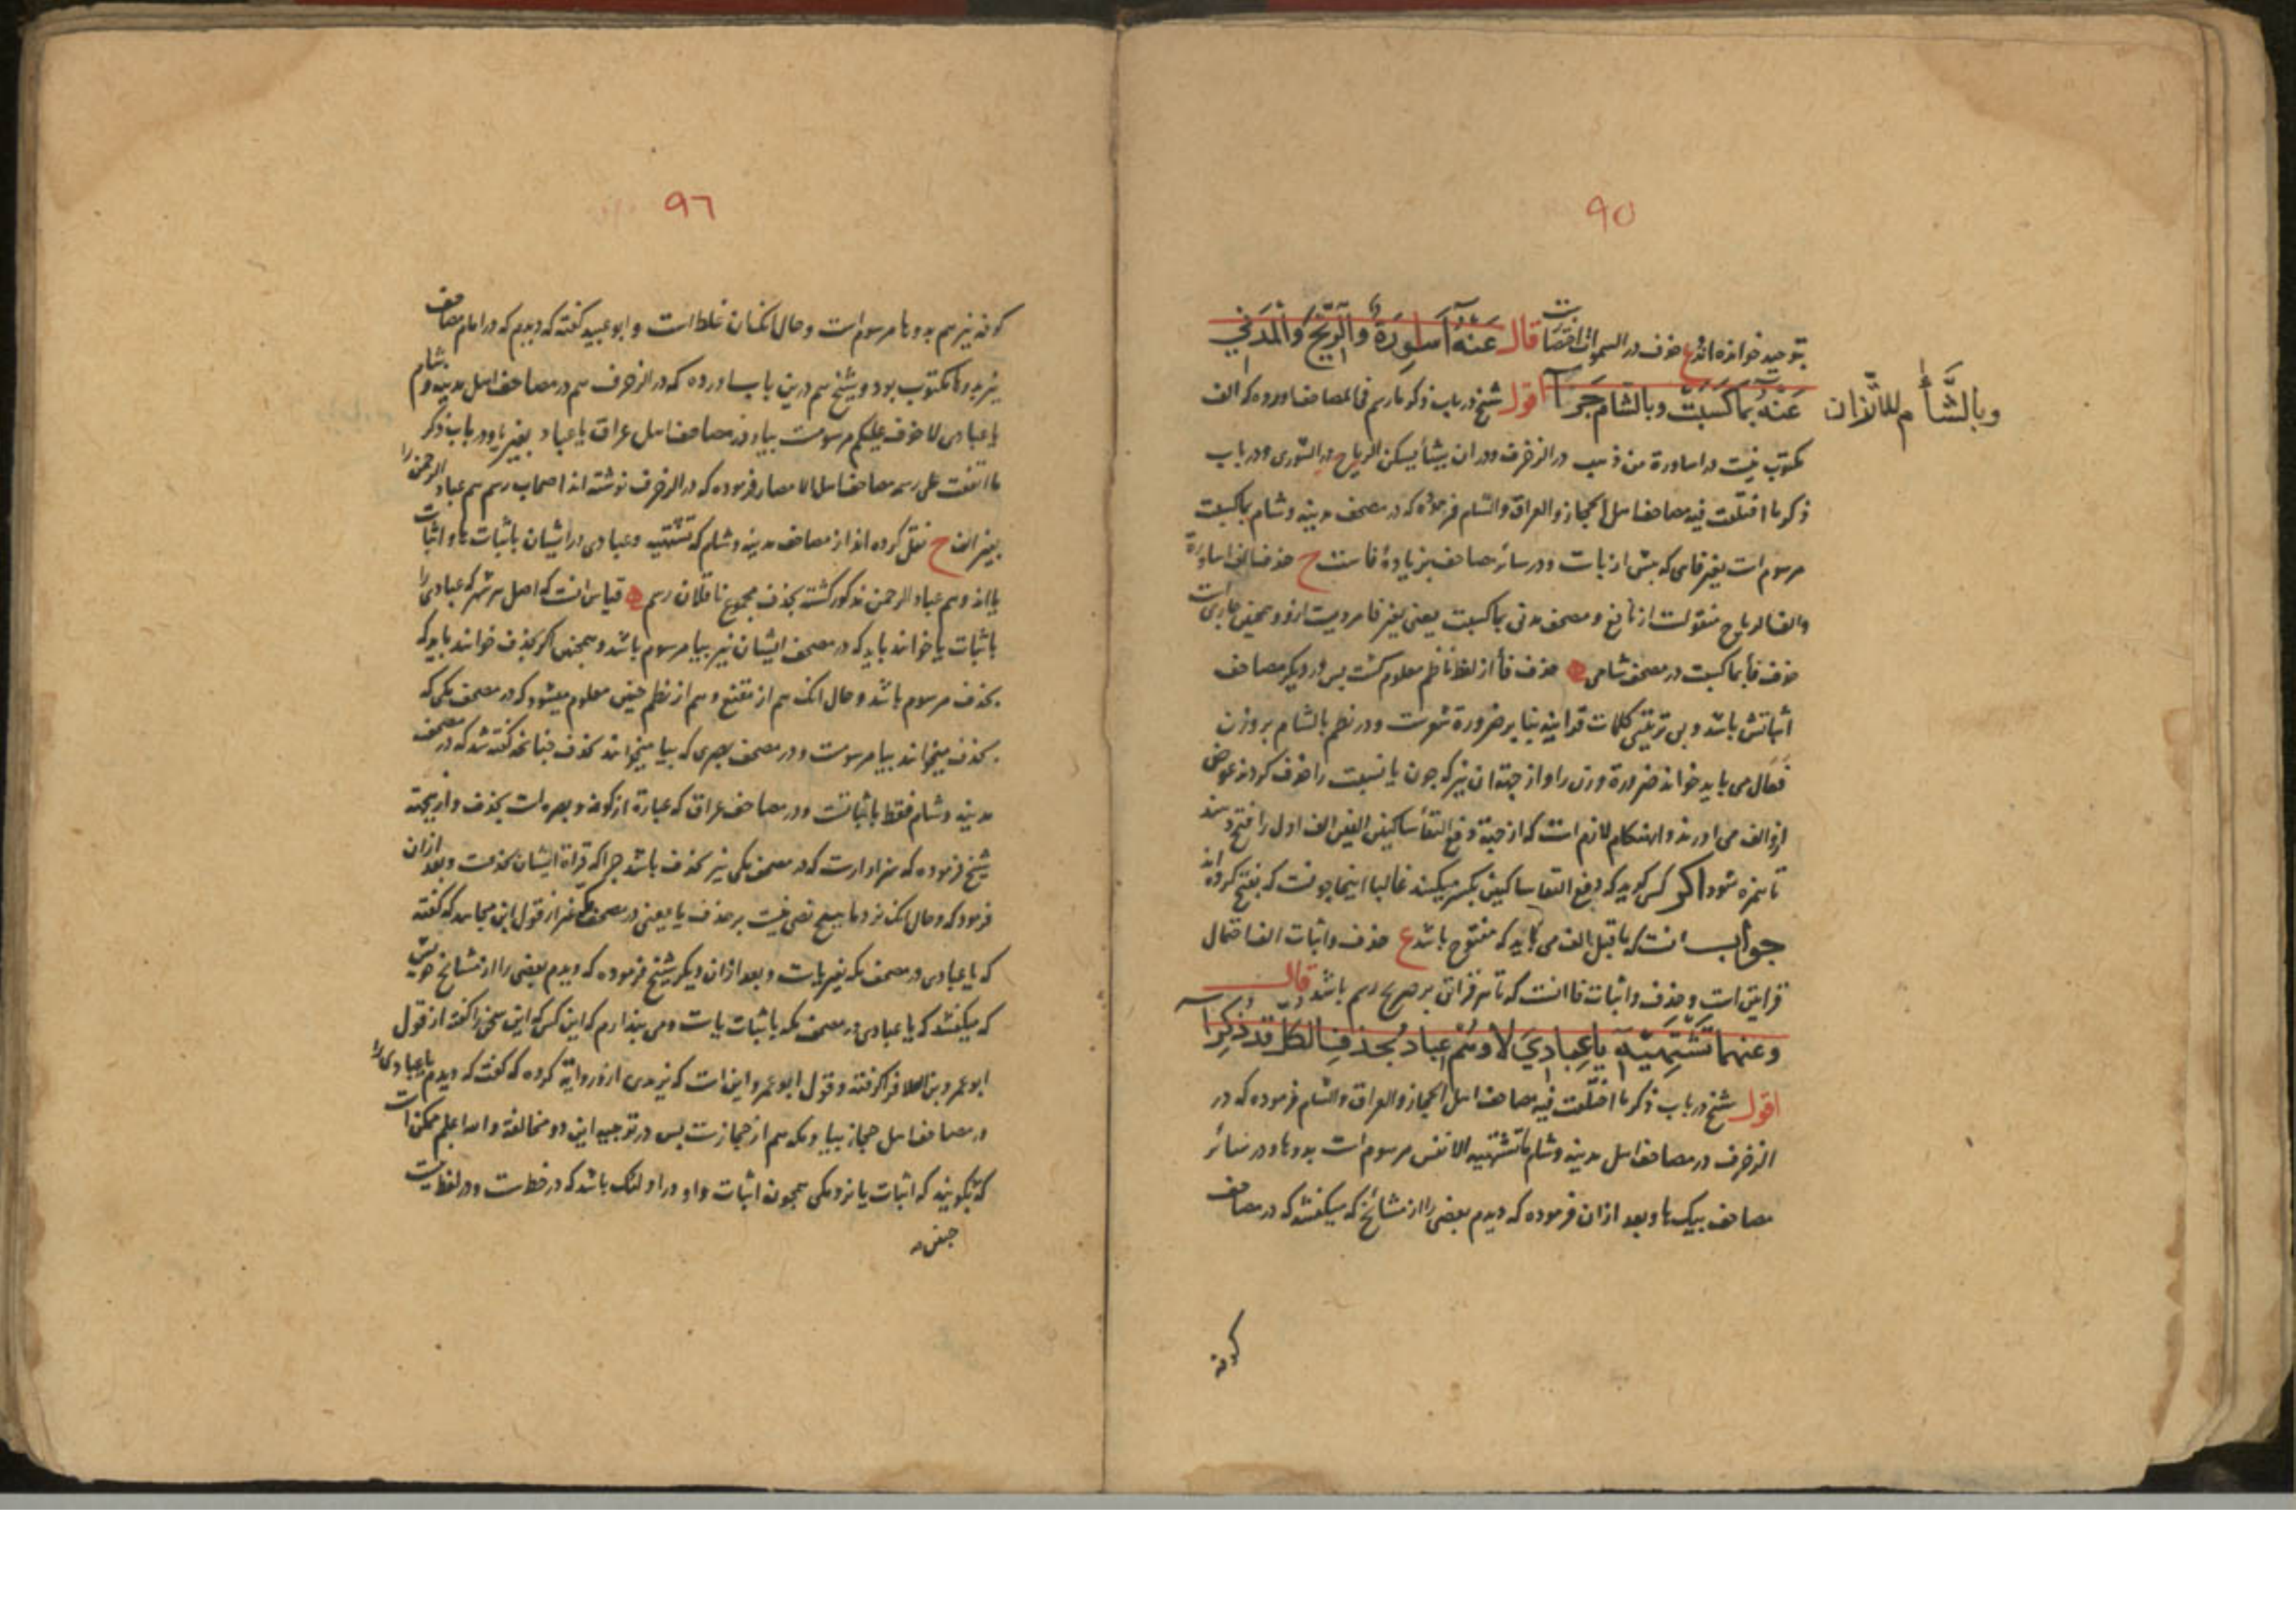 ۹۵
بتوحید خوانده‌اند ع حذف در السموات اختصارات قال عَنْهُ أَسَاوِرَةٌ وَالرِّيحَ وَالْمَدَنِي
عَنْهُ بِمَا كَسَبَتْ وبالشام جَرَى اقول شیخ در باب ذکر ما رسم فی المصاحف اورده که الف
وبالشَّأم للاتزان
مکتوب نیست در اساورة من ذهب در الزخرف ودر ان یشأ یسکن الریاح در الشوری ودر باب
ذکر ما اختلفت فیه مصاحف اهل الحجاز والعراق والشام فرموده که در مصحف مدینه وشام بما کسبت
مرسوم است بغیر فایی که پیش از باست ودر سائر مصاحف بزیادة فاست ح حذف الف اساورة
والف الریاح منقولست از نافع ومصحف مدنی بما کسبت یعنی بغیر فا مرویست ازو وهمچنین جاریست
حذف فأ بما کسبت در مصحف شامی حذف فأ از لفظ ناظم معلوم گشت پس در دیگر مصاحف
اثباتش باشد وبی ترتیبی کلمات قرانیه بنا بر ضرورة شعرست ودر نظم بالشام بر وزن
فَعَال می باید خواند ضرورة وزن را واز جهة ان نیز که چون یا نسبت را حذف کردند عوض
ازو الف می اورند وانهنکام لازم است که از جهة دفع التقأ ساکنین الفین الف اول را فتح دهند
تا همزه شود اگر کسی گوید که دفع التقا ساکنین بکسر میکنند غالبا اینجا چونست که بفتح کرده اند
جواب انست که ما قبل الف می باید که مفتوح باشد ع حذف واثبات الف احتمال
قرایتن است وحذف واثبات فا انست که تا هر قرائتی بر صریح رسم باشد قال
وعنهما تَشْتَهِيهِ يَا عِبَادِيَ لَا وهُمْ عِبَادُ بحذفِ الكل قد ذُكِرَا
اقول شیخ در باب ذکر ما اختلفت فیه مصاحف اهل الحجاز والعراق والشام فرموده که در
الزخرف در مصاحف اهل مدینه وشام ما تشتهیه الانفس مرسوم است بدو ها ودر سائر
مصاحف بیک ها وبعد ازان فرموده که دیدم بعضی را از مشائخ که میگفتند که در مصاحف
کوفه
۹٦
کوفه نیز هم بدو ها مرسوم است وحال انکه ان غلط است وابو عبید گفته که دیدم که در امام مصاحف
نیز بدو ها مکتوب بود وشیخ هم درین باب اورده که در الزخرف هم در مصاحف اهل مدینه وشام
یا عبادی لا خوف علیکم مرسومست بیا ودر مصاحف اهل عراق یا عباد بغیر یا ودر باب ذکر
ما اتفقت علی رسمه مصاحف اهل الامصار فرموده که در الزخرف نوشته اند اصحاب رسم هم عباد الرحمن را
بغیر الف ح نقل کرده اند از مصاحف مدینه وشام که تشتهیه وعبادی در ایشان باثبات ها واثبات
یا اند وهم عباد الرحمن مذکور گشته بحذف مجموع ناقلان رسم قیاس انست که اهل هر شهر که عبادی را
باثبات یا خوانند باید که در مصحف ایشان نیز بیا مرسوم باشد وهمچنین اگر بحذف خوانند باید که
بحذف مرسوم باشد وحال انک هم از مقنع وهم از نظم چنین معلوم میشود که در مصحف مکی که
بحذف میخوانند بیا مرسومست ودر مصحف بصری که بیا میخوانند بحذف چنانچه گفته شد که در مصحف
مدینه وشام فقط باثباتست ودر مصاحف عراق که عبارة از کوفه وبصره است بحذف وازین جهة
شیخ فرموده که سزاوارست که در مصحف مکی نیز بحذف باشد چرا که قراة ایشان بحذفست وبعد ازان
فرمود که وحال انک نزد ما هیچ نصی نیست بر حذف یا یعنی در مصحف مکی غیر از قول ابن مجاهد که گفته
که یا عبادی در مصحف مکه بغیر یاست وبعد ازان دیگر شیخ فرموده که دیدم بعضی را از مشائخ خویش
که میگفتند که یا عبادی در مصحف مکه باثبات یاست ومی پندارم که این کس که این سخن را گفته از قول
ابو عمرو بن العلا فرا گرفته وقول ابو عمرو اینست که یزیدی ازو روایة کرده که گفت که دیدم یا عبادی را
در مصاحف اهل حجاز بیا ومکه هم از حجازست پس در توجیه این دو مخالفة والله اعلم ممکن است
که بگویند که اثبات یا نزد مکی همچون اثبات واو در اولئک باشد که در خطست ودر لفظ نیست